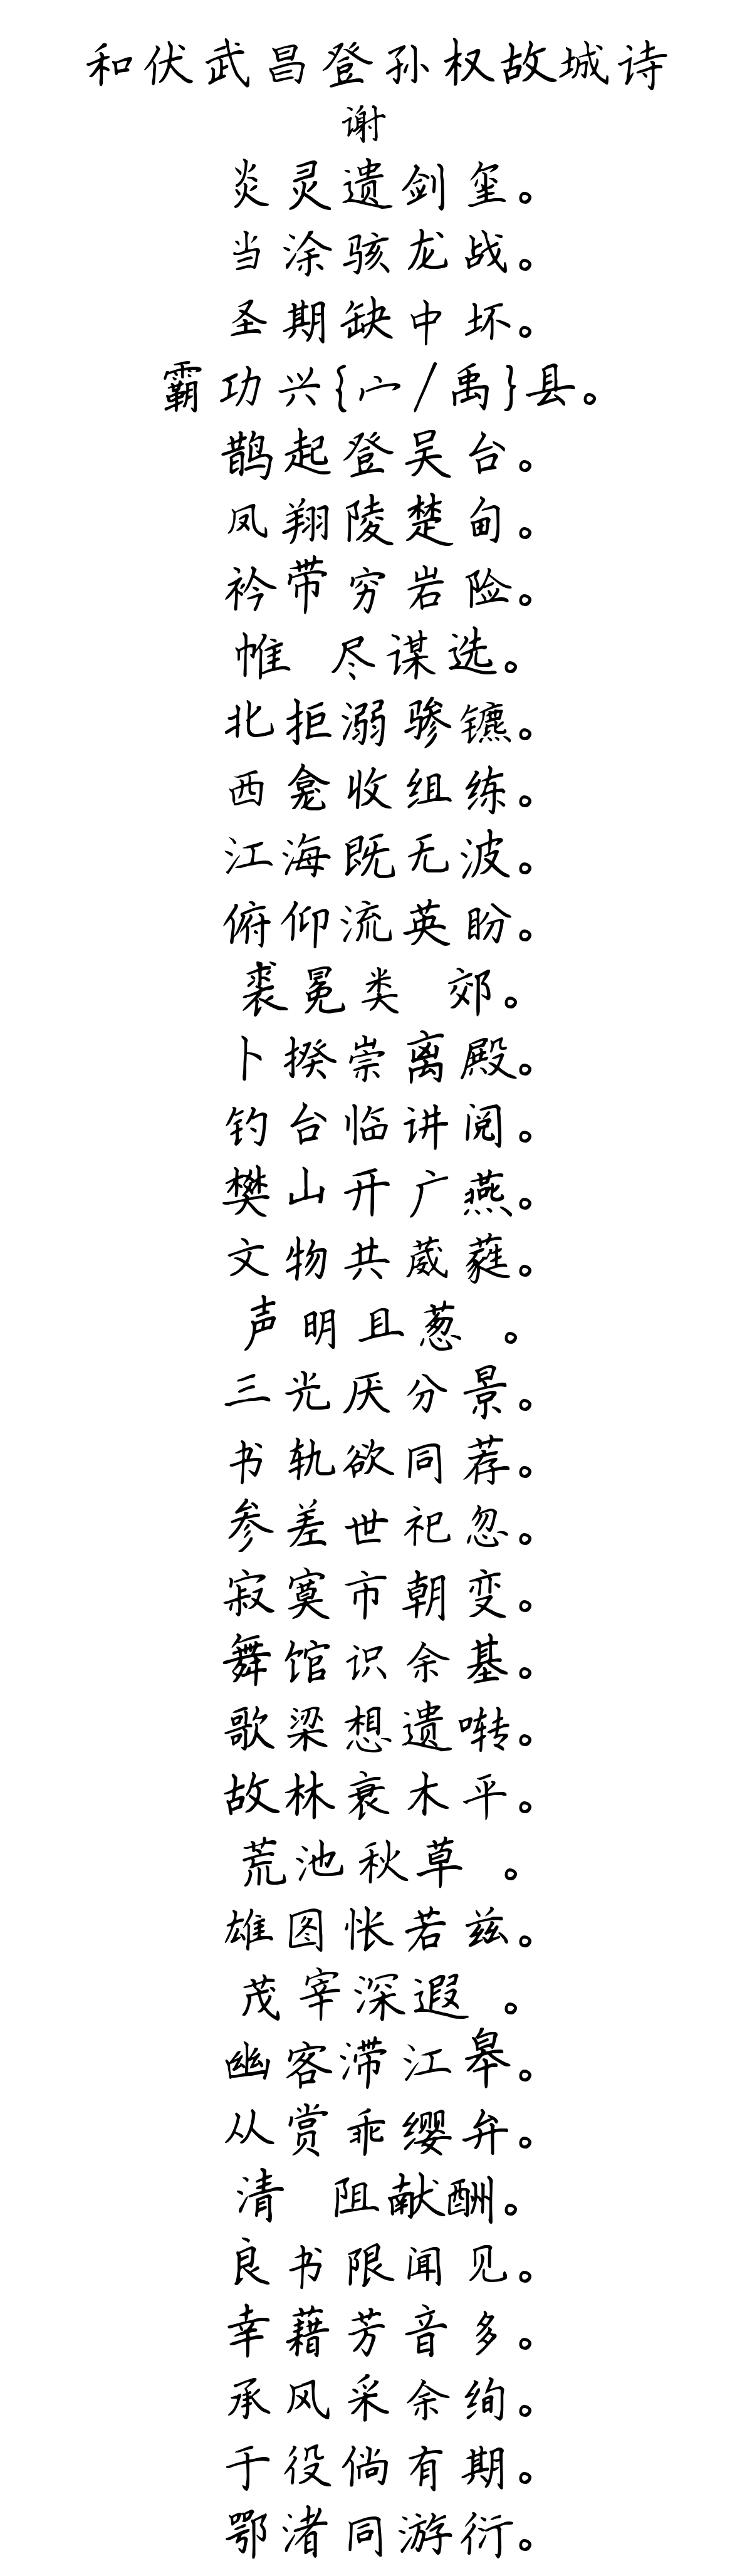 和伏武昌登孙权故城诗
谢
炎灵遗剑玺。
当涂骇龙战。
圣期缺中坏。
霸功兴{宀/禹}县。
鹊起登吴台。
凤翔陵楚甸。
衿带穷岩险。
帷 尽谋选。
北拒溺骖镳。
西龛收组练。
江海既无波。
俯仰流英盼。
裘冕类 郊。
卜揆崇离殿。
钓台临讲阅。
樊山开广燕。
文物共葳蕤。
声明且葱 。
三光厌分景。
书轨欲同荐。
参差世祀忽。
寂寞市朝变。
舞馆识余基。
歌梁想遗啭。
故林衰木平。
荒池秋草 。
雄图怅若兹。
茂宰深遐 。
幽客滞江皋。
从赏乖缨弁。
清 阻献酬。
良书限闻见。
幸藉芳音多。
承风采余绚。
于役倘有期。
鄂渚同游衍。